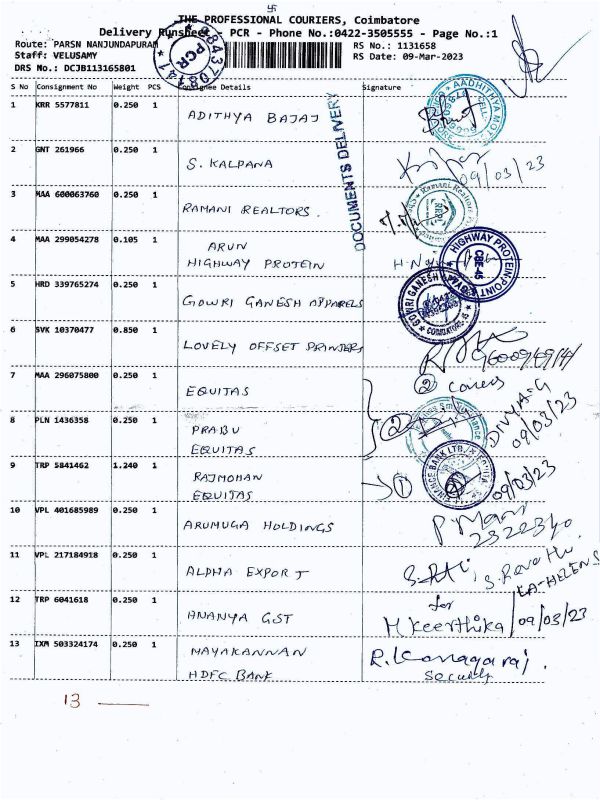 THE PROFESSIONAL COURIERS, Coimbatore
Delivery Runsheet PCR - Phone No.:0422-3505555 - Page No.:1
Route: PARSN NANJUNDAPURAM RS No.: 1131658
Staff: VELUSAMY RS Date: 09-Mar-2023
DRS No.: DCJB113165801
PCR
S No Consignment No Weight PCS Consignee Details Signature
DOCUMENTS DELIVERY
1 KRR 5577811 0.250 1 ADITHYA BAJAJ
2 GNT 261966 0.250 1 S. KALPANA 09/03/23
3 MAA 600063760 0.250 1 RAMANI REALTORS.
4 MAA 299054278 0.105 1 ARUN
HIGHWAY PROTEIN
HIGHWAY PROTEIN POINT
CBE-45
5 HRD 339765274 0.250 1 GOWRI GANESH APPARELS
6 SVK 10370477 0.850 1 LOVELY OFFSET PRINTERS
7 MAA 296075800 0.250 1 EQUITAS
② covers
8 PLN 1436358 0.250 1 PRABU
EQUITAS
② DIVYA-G
09/03/23
9 TRP 5841462 1.240 1 RAJMOHAN
EQUITAS
① 09/03/23
10 VPL 401685989 0.250 1 ARUMUGA HOLDINGS
P Mani
11 VPL 217184918 0.250 1 ALPHA EXPORT
S. Revathi
12 TRP 6041618 0.250 1 ANANYA GST
for
M Keerthika / 09/03/23
13 IXM 503324174 0.250 1 MAYAKANNAN
HDFC BANK
R. Kanagaraj.
Security
13